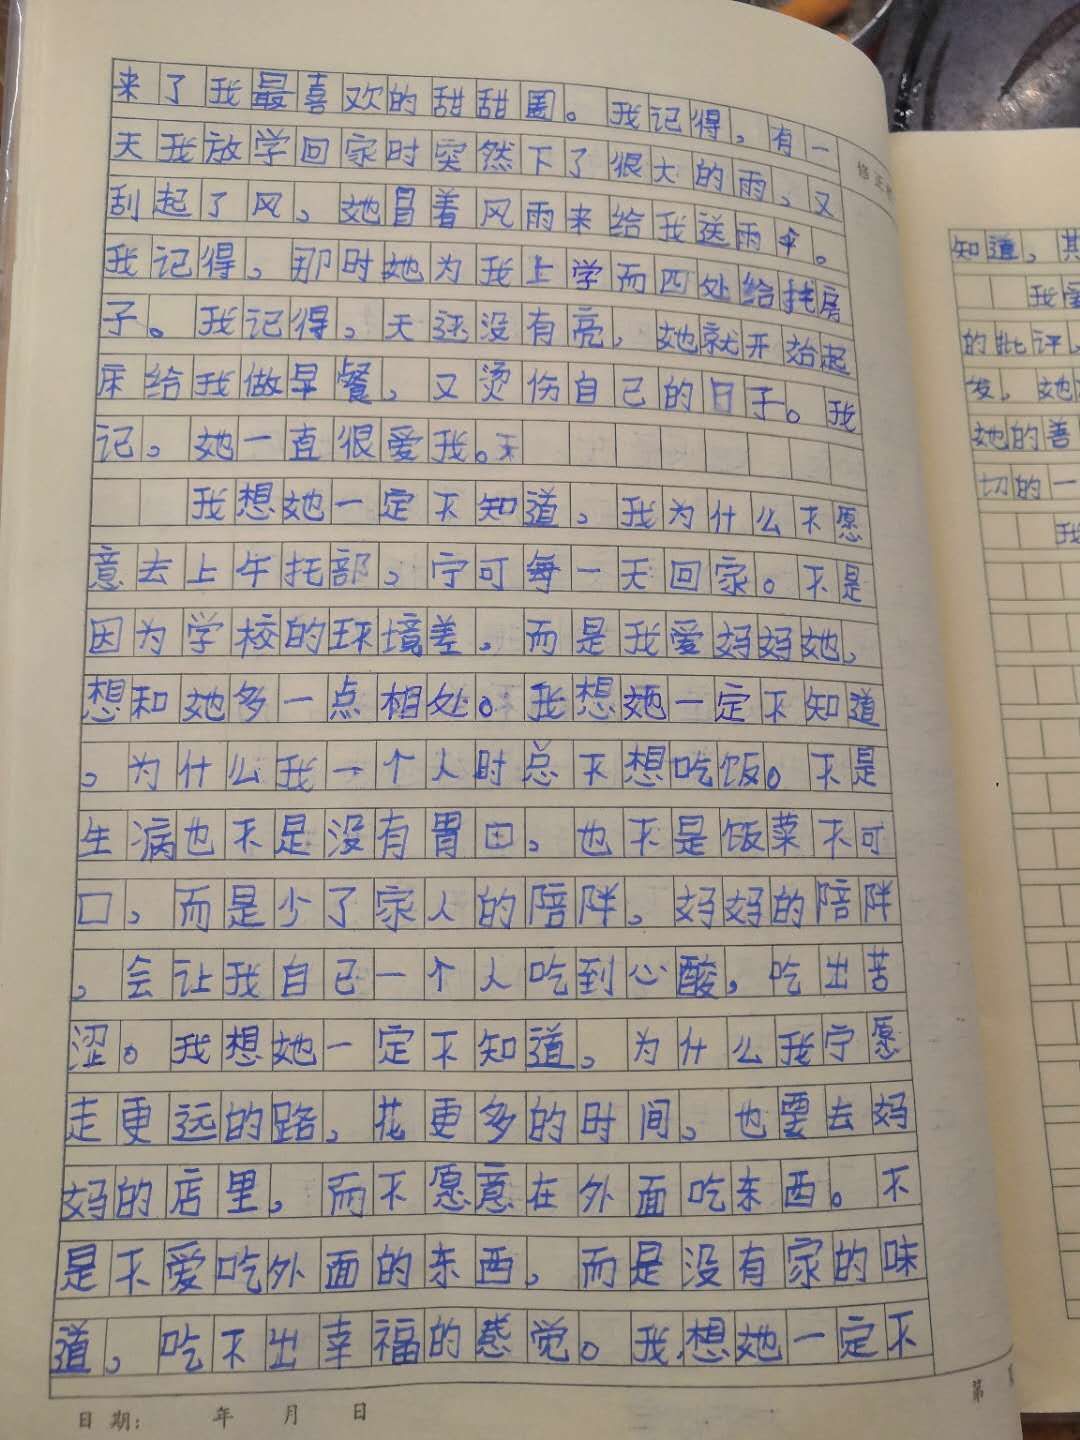 来了我最喜欢的甜甜圈。我记得,有一
天我放学回家时突然下了很大的雨,又
刮起了风,她冒着风雨来给我送雨伞。
我记得,那时她为我上学而四处给找房
子。我记得,天还没有亮,她就开始起
床给我做早餐,又烫伤自己的日子。我
记,她一直很爱我。天
我想她一定不知道,我为什么不愿
意去上午托部,宁可每一天回家。不是
因为学校的环境差,而是我爱妈妈她,
想和她多一点相处。我想她一定不知道
,为什么我一个人时总不想吃饭。不是
生病也不是没有胃口,也不是饭菜不可
口,而是少了家人的陪陪,妈妈的陪陪
,会让我自己一个人吃到心酸,吃出苦
涩。我想她一定不知道,为什么我宁愿
走更远的路,花更多的时间,也要去妈
妈的店里,而不愿意在外面吃东西。不
是不爱吃外面的东西,而是没有家的味
道,吃不出幸福的感觉。我想她一定不
日期: 年 月 日
第
修正
知道,其
我
的批评,
发,她
她的善
切的一
我